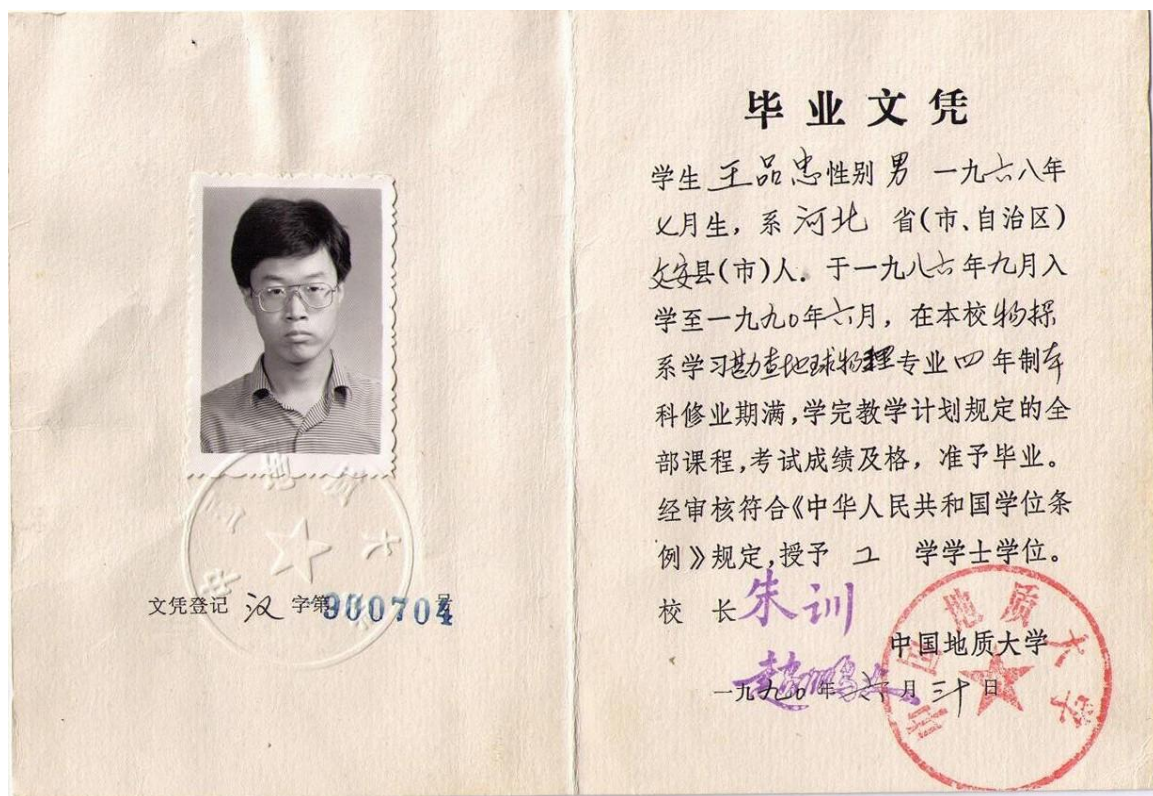 文凭登记 汉 字第900704号
毕业文凭
学生 王品忠 性别 男 一九六八年
七月生，系 河北 省(市、自治区)
文安县(市)人. 于一九八六年九月入
学至一九九〇年六月，在本校物探
系学习勘查地球物理专业四年制本
科修业期满,学完教学计划规定的全
部课程,考试成绩及格，准予毕业。
经审核符合《中华人民共和国学位条
例》规定,授予 工 学学士学位。
校 长 朱训
赵鹏大
中国地质大学
一九九〇年六月三十日
中国地质大学
中国地质大学